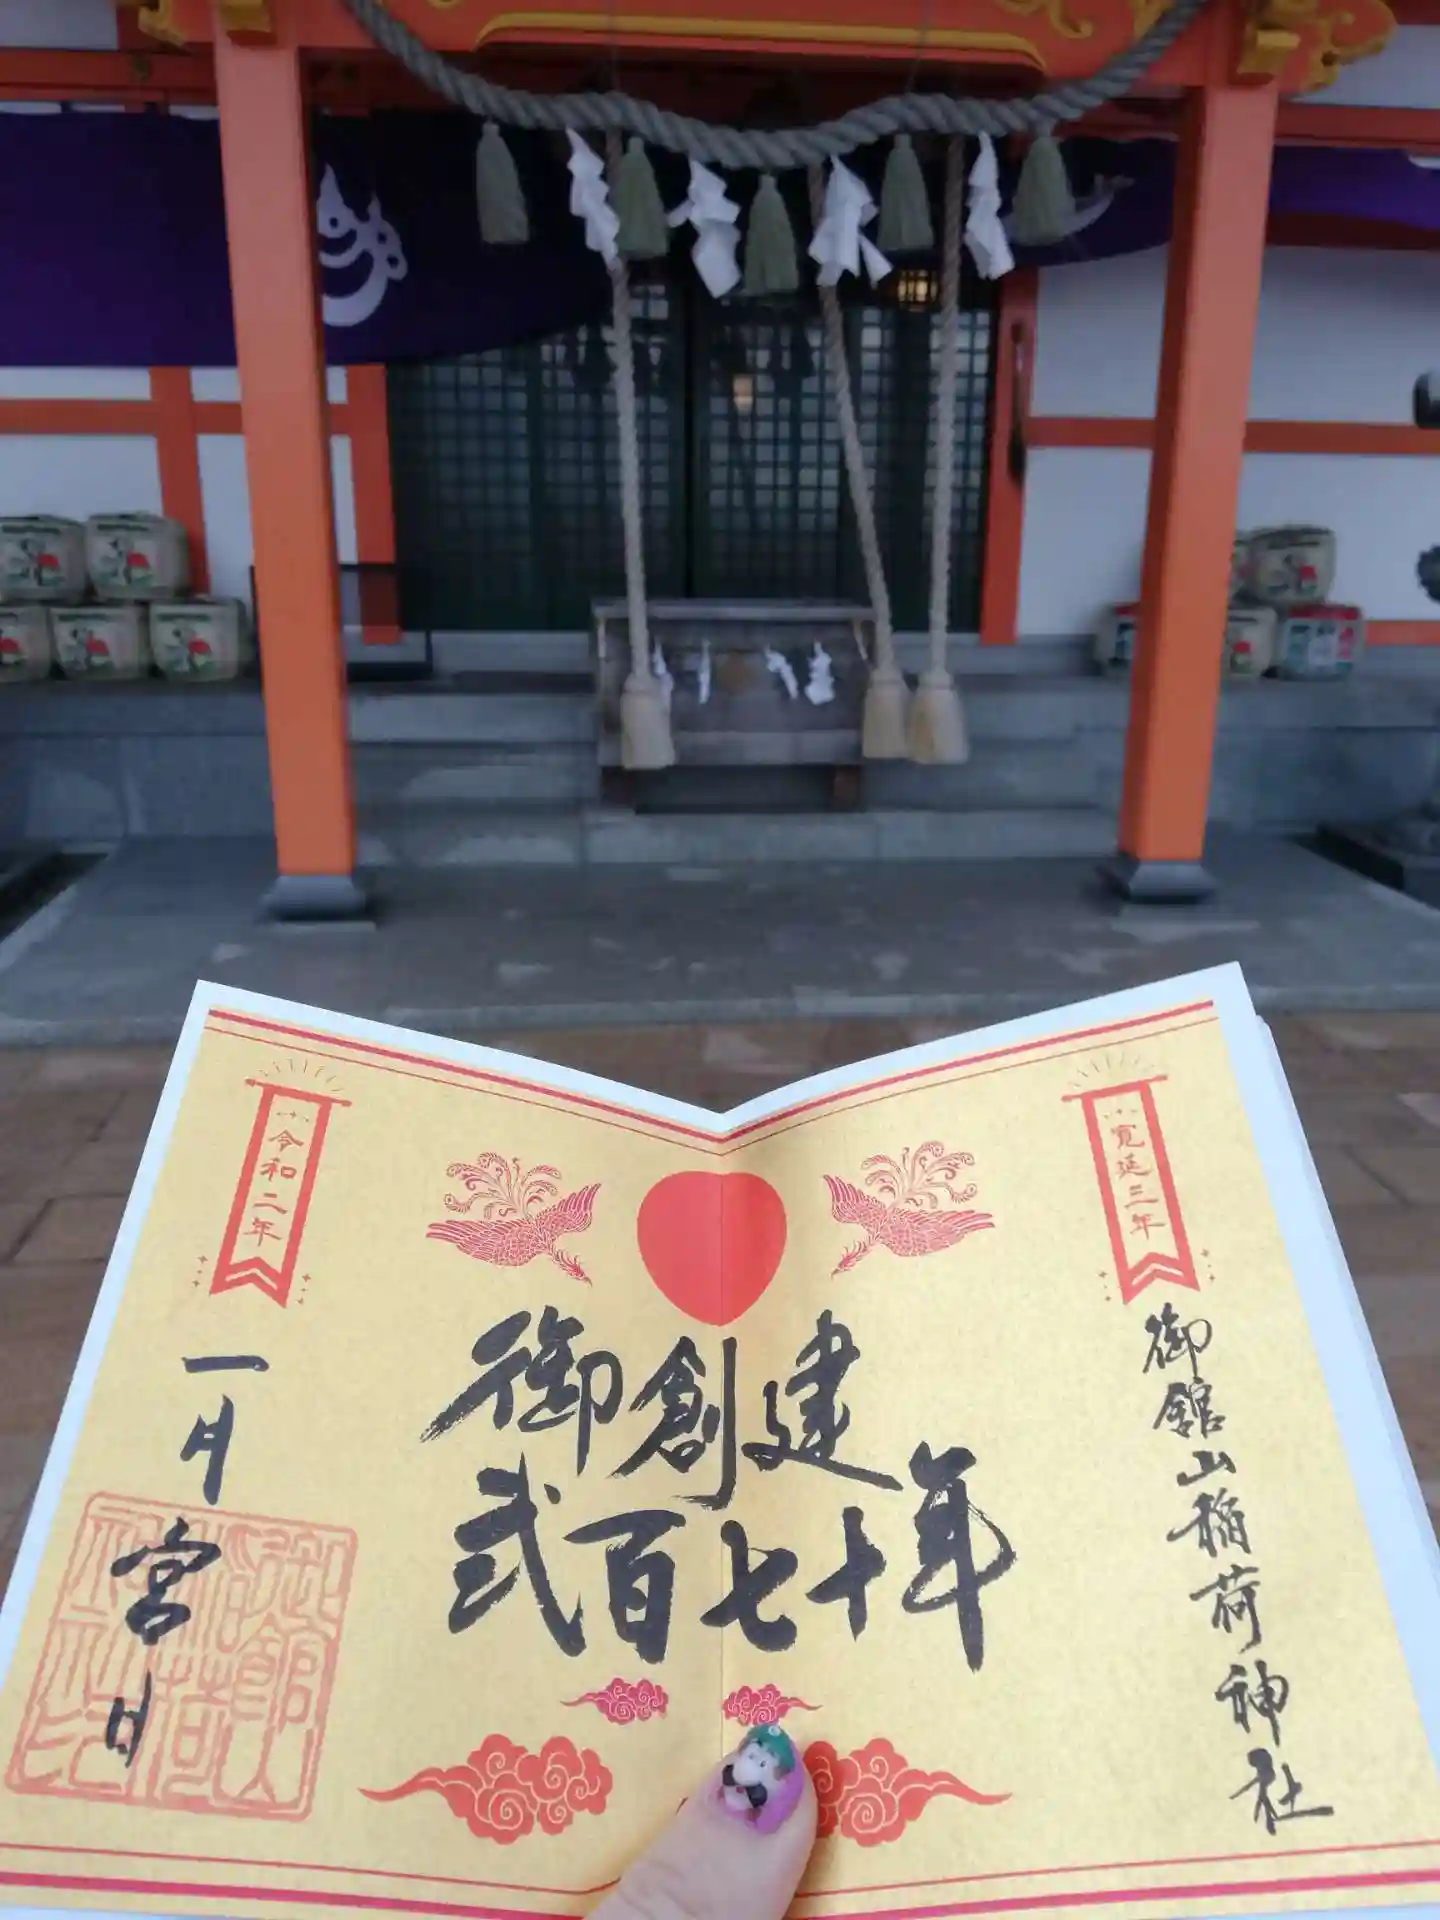 寛延三年
御舘山稲荷神社
御創建
弐百七十年
令和二年
一月宮日